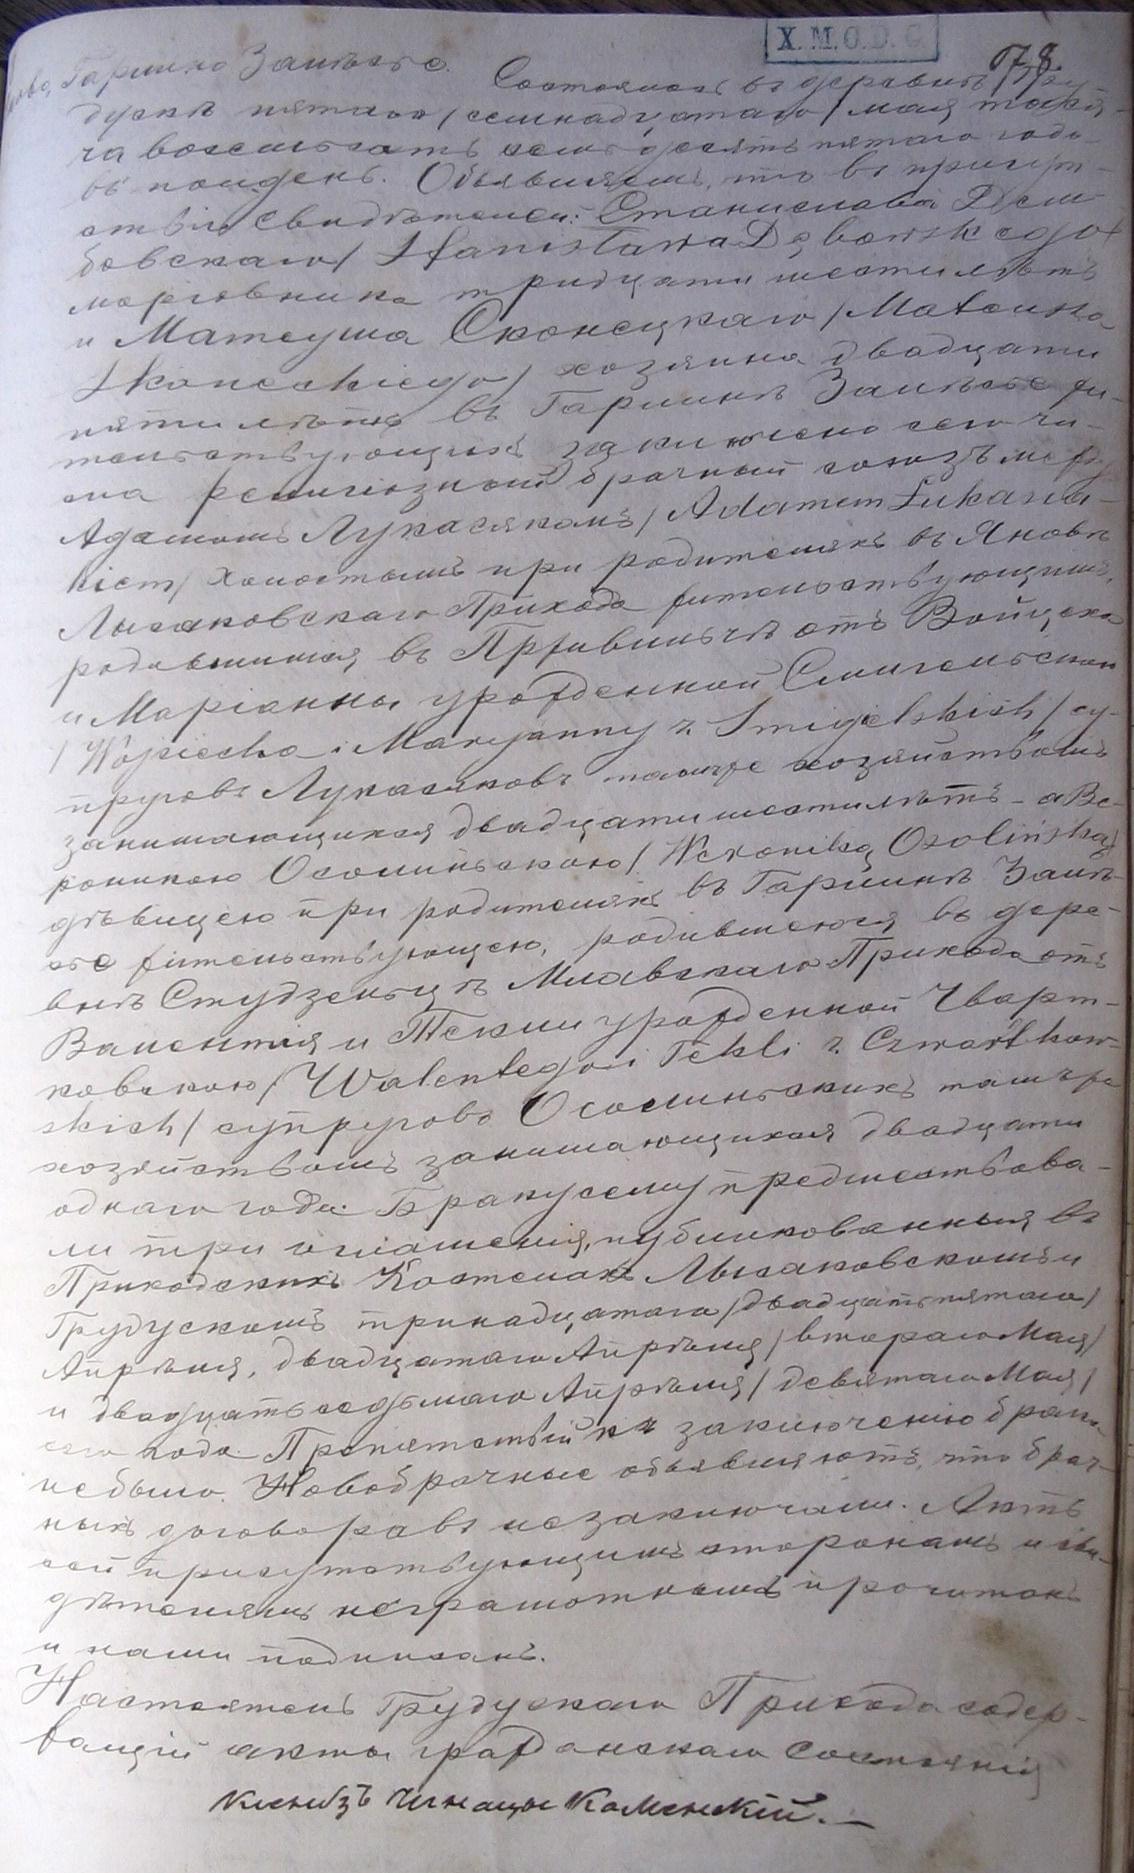 X. M. O. D. G.
78.
Гарлино Залѣсье. Состоялось въ деревнѣ Гру-
дускѣ пятаго /семнадцатаго/ мая тыся-
ча восемьсотъ семьдесятъ пятаго года
въ полдень. Объявляемъ, что въ присут-
ствіи свидѣтелей: Станислава Дом-
бовскаго / Stanisława Dąbowskiego /
морговника тридцати шести лѣтъ
и Матеуша Сконецкаго / Mateusza
Skoneckiego / хозяина двадцати
пяти лѣтъ въ Гарлинѣ Залѣсье жи-
тельствующихъ заключено сего чи-
сла религіозный брачный союзъ между
Адамомъ Лукасякомъ / Adamem Łukasia-
kiem / холостымъ при родителяхъ въ Яновѣ
Лысаковскаго Прихода жительствующимъ,
родившимся въ отъ Войцеха
и Маріанны урожденной Смигельской
/ Wojciecha i Maryanny z Smigielskich / су-
пруговъ Лукасяковъ тамъже хозяйствомъ
занимающихся двадцати шести лѣтъ - а Ве-
роникою Осолиньскою / Weroniką Osolińską /
дѣвицею при родителяхъ въ Гарлинѣ Залѣ-
сье жительствующею, родившеюся въ дере-
внѣ Студзеньцѣ Млавскаго Прихода отъ
Валентія и Теклы урожденной Чварт-
ковскою / Walentego i Tekli z Czwartkow-
skich / супруговъ Осолиньскихъ тамъже
хозяйствомъ занимающихся двадцати
одного года. Браку сему предшествова-
ли три оглашенія, публикованныя въ
Приходскихъ Костелахъ Лысаковскомъ и
Грудускомъ тринадцатаго /двадцать пятаго/
Апрѣля, двадцатаго Апрѣля / втораго Мая /
и двадцать седьмаго Апрѣля / девятаго Мая /
сего года. Препятствій къ заключенію брака
не было. Новобрачные объявляютъ, что брач-
ныхъ договоровъ не заключали. Актъ
сей присутствующимъ сторонамъ и сви-
дѣтелямъ неграмотнымъ прочитанъ
и нами подписанъ.
Настоятель Грудускаго Прихода содер-
жащій акты гражданскаго состоянія
Ксендзъ Игнацы Каменскій.